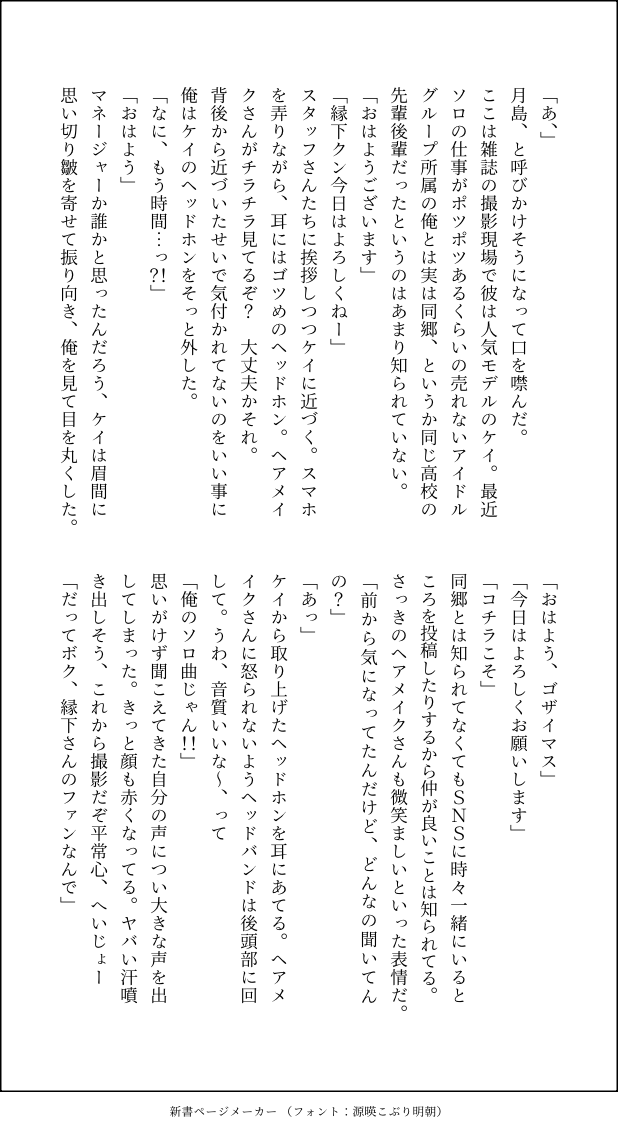 「あ、」
月島、と呼びかけそうになって口を噤んだ。
ここは雑誌の撮影現場で彼は人気モデルのケイ。最近
ソロの仕事がポツポツあるくらいの売れないアイドル
グループ所属の俺とは実は同郷、というか同じ高校の
先輩後輩だったというのはあまり知られていない。
「おはようございます」
「縁下クン今日はよろしくねー」
スタッフさんたちに挨拶しつつケイに近づく。スマホ
を弄りながら、耳にはゴツめのヘッドホン。ヘアメイ
クさんがチラチラ見てるぞ？　大丈夫かそれ。
背後から近づいたせいで気付かれてないのをいい事に
俺はケイのヘッドホンをそっと外した。
「なに、もう時間…っ?!」
「おはよう」
マネージャーか誰かと思ったんだろう、ケイは眉間に
思い切り皺を寄せて振り向き、俺を見て目を丸くした。
「おはよう、ゴザイマス」
「今日はよろしくお願いします」
「コチラこそ」
同郷とは知られてなくてもＳＮＳに時々一緒にいると
ころを投稿したりするから仲が良いことは知られてる。
さっきのヘアメイクさんも微笑ましいといった表情だ。
「前から気になってたんだけど、どんなの聞いてん
の？」
「あっ」
ケイから取り上げたヘッドホンを耳にあてる。ヘアメ
イクさんに怒られないようヘッドバンドは後頭部に回
して。うわ、音質いいな～、って
「俺のソロ曲じゃん!!」
思いがけず聞こえてきた自分の声につい大きな声を出
してしまった。きっと顔も赤くなってる。ヤバい汗噴
き出しそう、これから撮影だぞ平常心、へいじょー
「だってボク、縁下さんのファンなんで」
新書ページメーカー（フォント：源暎こぶり明朝）